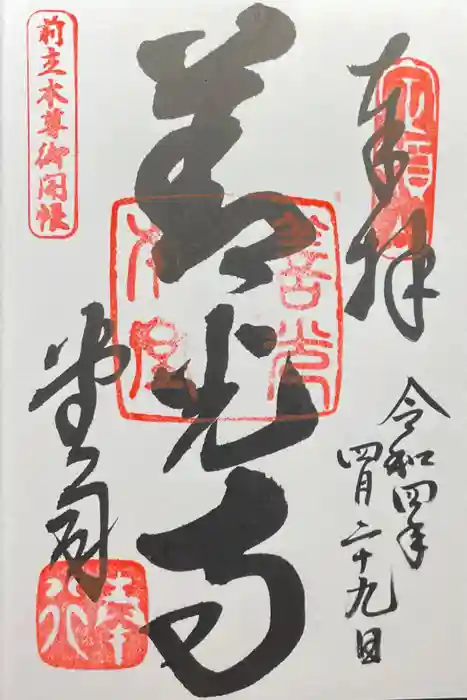 奉拝
令和四年
四月二十九日
善光寺
善光
前立本尊御開帳
堂司
奉行